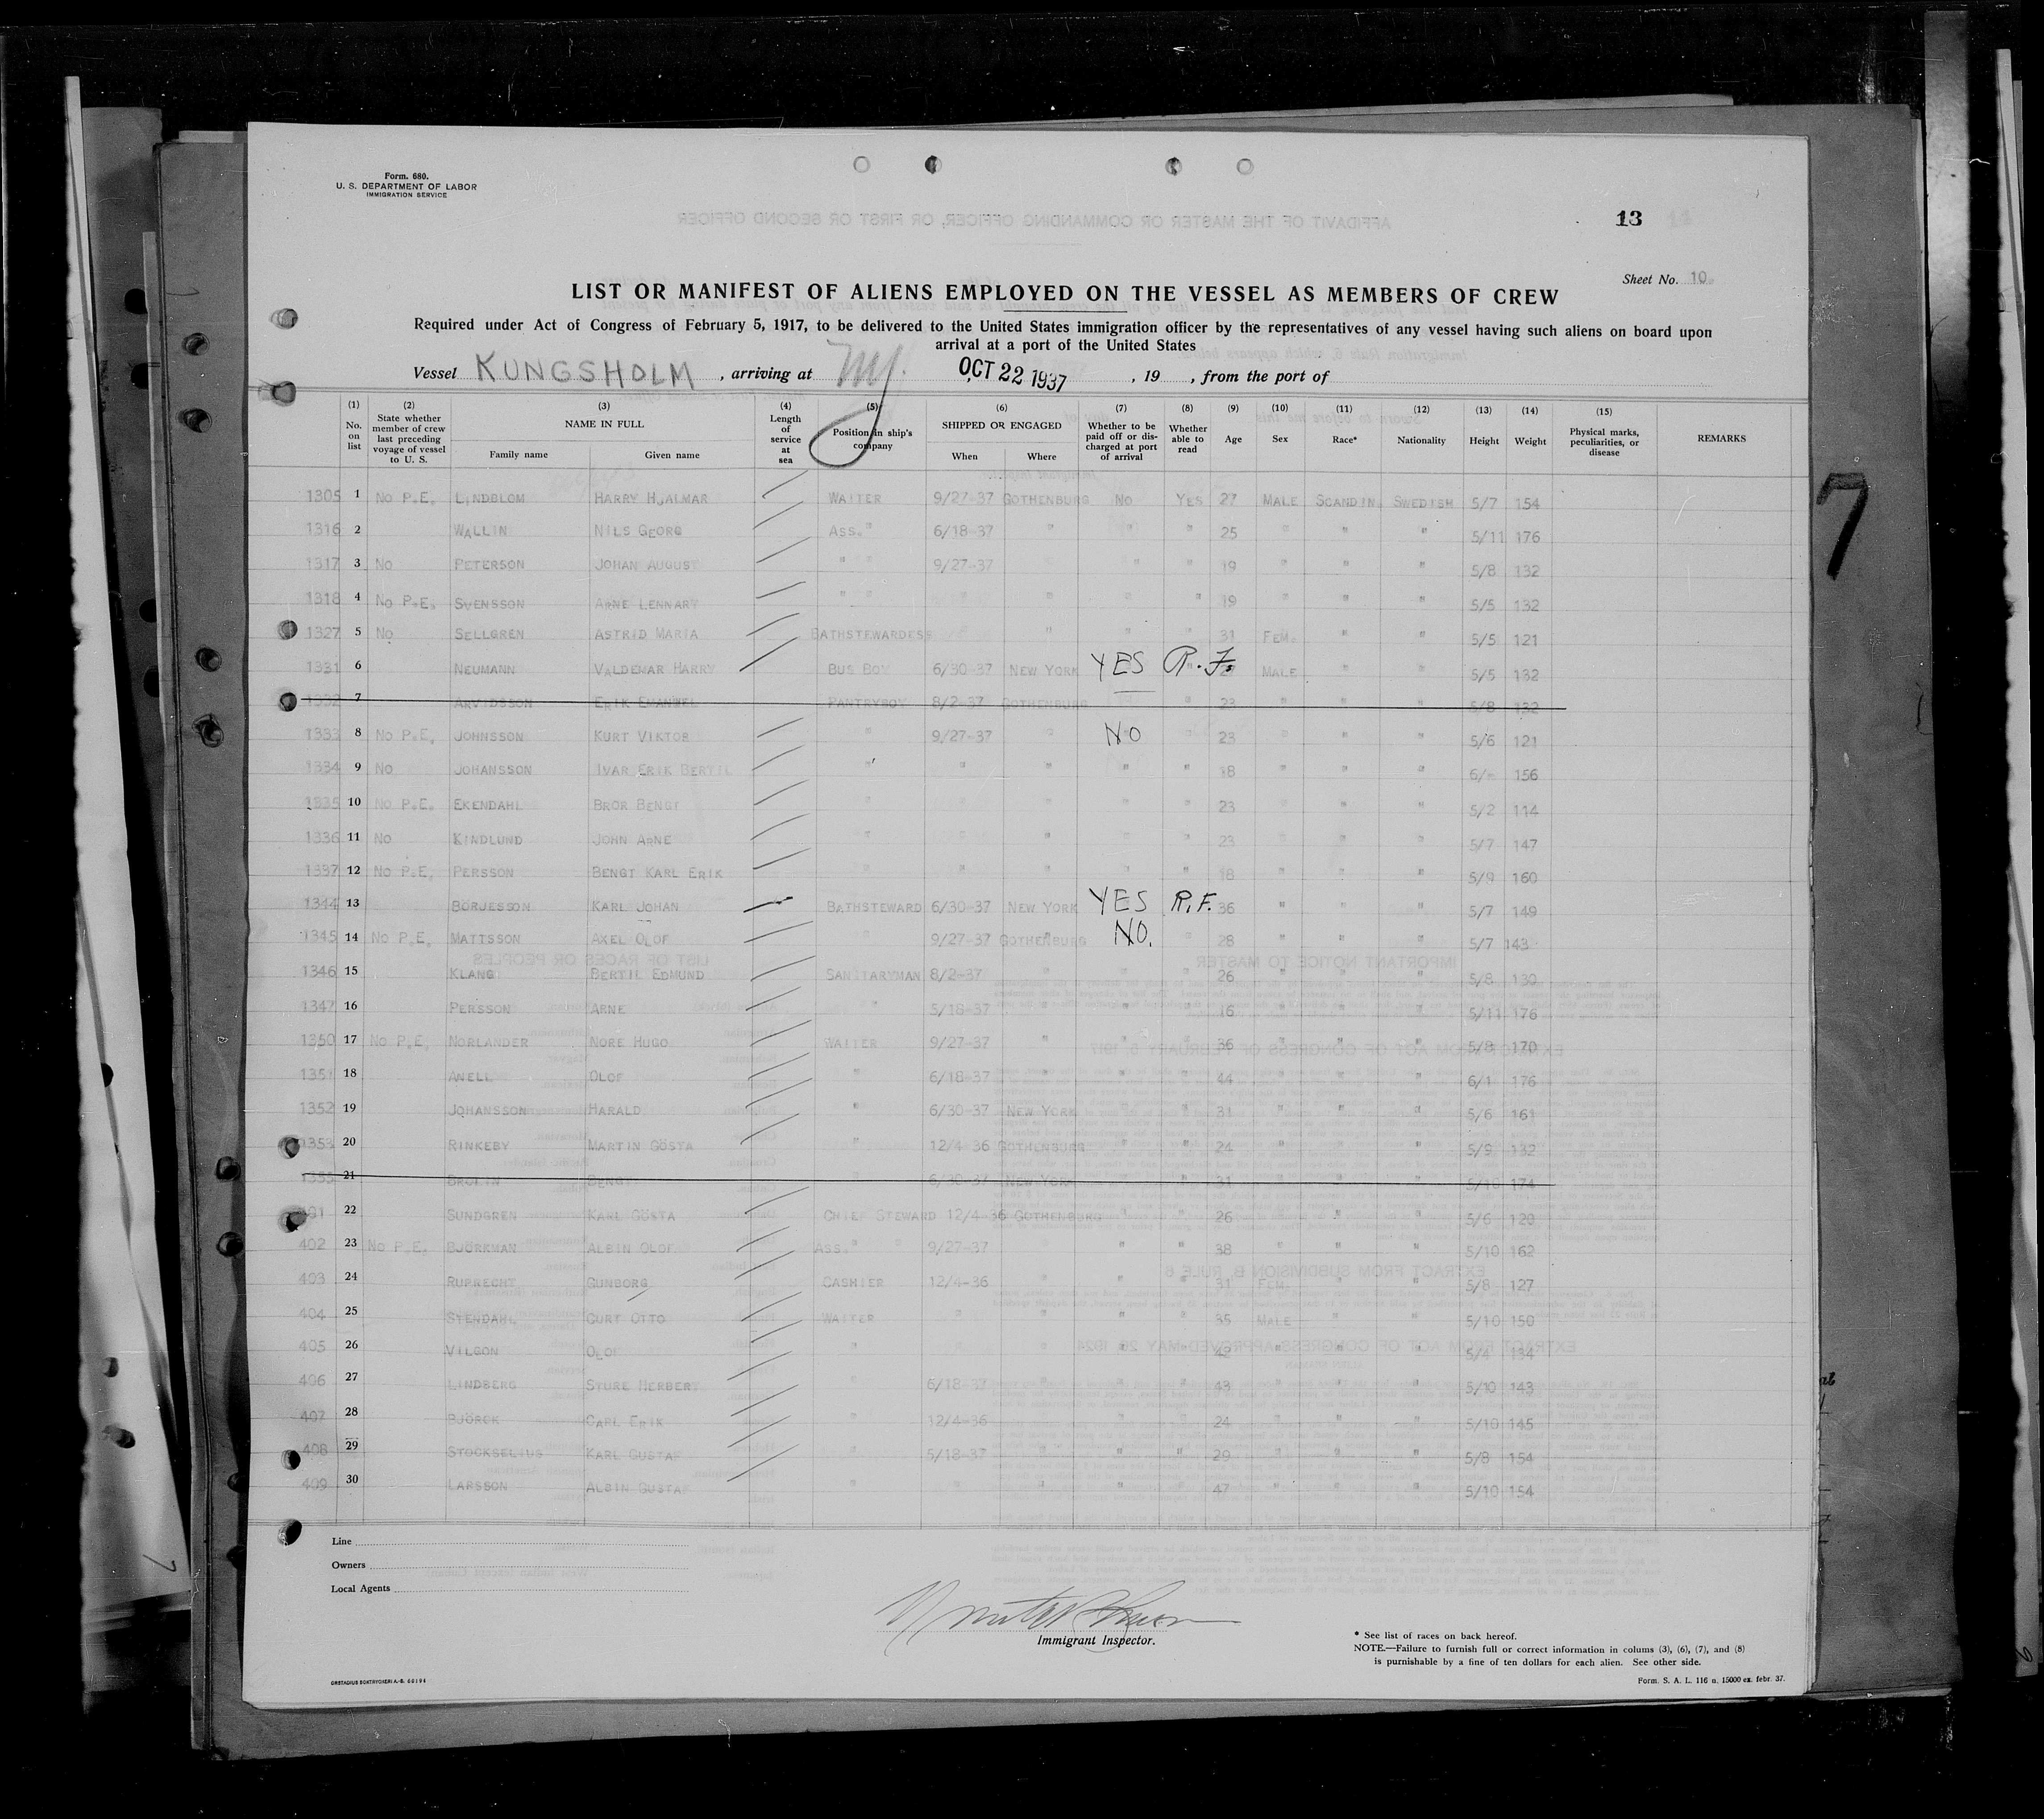 Form. 680.
U. S. DEPARTMENT OF LABOR
IMMIGRATION SERVICE
13
Sheet No. 10.
LIST OR MANIFEST OF ALIENS EMPLOYED ON THE VESSEL AS MEMBERS OF CREW
Required under Act of Congress of February 5, 1917, to be delivered to the United States immigration officer by the representatives of any vessel having such aliens on board upon
arrival at a port of the United States
Vessel KUNGSHOLM, arriving at NY. OCT 22 1937, 19, from the port of
(1) No. on list (2) State whether member of crew last preceding voyage of vessel to U. S. (3) NAME IN FULL Family name Given name (4) Length of service at sea (5) Position in ship's company (6) SHIPPED OR ENGAGED When Where (7) Whether to be paid off or discharged at port of arrival (8) Whether able to read (9) Age (10) Sex (11) Race* (12) Nationality (13) Height (14) Weight (15) Physical marks, peculiarities, or disease REMARKS
1305 1 No P.E. LINDBLOM HARRY HJALMAR WAITER 9/27-37 GOTHENBURG No YES 27 MALE SCANDIN. SWEDISH 5/7 154
1316 2 WALLIN NILS GEORG ASS. " 6/18-37 " " " 25 " " " 5/11 176
1317 3 No PETERSON JOHAN AUGUST " " 9/27-37 " " 19 " " " 5/8 132
1318 4 No P.E. SVENSSON ARNE LENNART " " " 19 " " " 5/5 132
1327 5 No SELLGREN ASTRID MARIA BATHSTEWARDESS " " " 31 FEM. " " 5/5 121
1331 6 NEUMANN VALDEMAR HARRY BUS BOY 6/30-37 NEW YORK YES R.F. MALE " " 5/5 132
1332 7 ARVIDSSON ERIK EMANUEL PANTRYBOY 8/2-37 GOTHENBURG " 23 " " " 5/8 132
1333 8 No P.E. JOHNSSON KURT VIKTOR " 9/27-37 " NO " 23 " " " 5/6 121
1334 9 No JOHANSSON IVAR ERIK BERTIL " " " " " 18 " " " 6/- 156
1335 10 No P.E. EKENDAHL BROR BENGT " " " " 23 " " " 5/2 114
1336 11 No KINDLUND JOHN ARNE " " " " 23 " " " 5/7 147
1337 12 No P.E. PERSSON BENGT KARL ERIK " " " " " 18 " " " 5/9 160
1344 13 BÖRJESSON KARL JOHAN BATHSTEWARD 6/30-37 NEW YORK YES R.F. 36 " " " 5/7 149
1345 14 No P.E. MATTSSON AXEL OLOF " 9/27-37 GOTHENBURG NO. " 28 " " " 5/7 143
1346 15 KLANG BERTIL EDMUND SANITARYMAN 8/2-37 " " " 26 " " " 5/8 130
1347 16 PERSSON ARNE " 5/18-37 " " " 16 " " " 5/11 176
1350 17 No P.E. NORLANDER NORE HUGO WAITER 9/27-37 " " " 36 " " " 5/8 170
1351 18 ANELL OLOF " 6/18-37 " " " 44 " " " 6/1 176
1352 19 JOHANSSON HARALD " 6/30-37 NEW YORK " " 31 " " " 5/6 161
1353 20 RINKEBY MARTIN GÖSTA " 12/4-36 GOTHENBURG " " 24 " " " 5/9 132
1355 21 BROLIN BENGT 6/30-37 NEW YORK " " 31 " " " 5/10 174
22 SUNDGREN KARL GÖSTA CHIEF STEWARD 12/4-36 GOTHENBURG " " 26 " " " 5/6 120
402 23 No P.E. BJÖRKMAN ALBIN OLOF ASS. " " 9/27-37 " " 38 " " " 5/10 162
403 24 RUPRECHT GUNBORG CASHIER 12/4-36 " " " 31 FEM. " " 5/8 127
404 25 STENDAHL CURT OTTO WAITER " " " " 35 MALE " " 5/10 150
405 26 VILSON OLOF " " " " " 42 " " " 5/4 134
406 27 LINDBERG STURE HERBERT " 6/18-37 " " " 43 " " " 5/10 143
407 28 BJÖRCK CARL ERIK " 12/4-36 " " " 24 " " " 5/10 145
408 29 STOCKSELIUS KARL GUSTAF " 5/18-37 " " " 29 " " " 5/8 154
409 30 LARSSON ALBIN GUSTAF " " " " " 47 " " " 5/10 154
7
Line
Owners
Local Agents
Immigrant Inspector.
* See list of races on back hereof.
NOTE.—Failure to furnish full or correct information in colums (3), (6), (7), and (8)
is punishable by a fine of ten dollars for each alien. See other side.
Form. S. A. L. 116 n. 15000 ex. febr. 37.